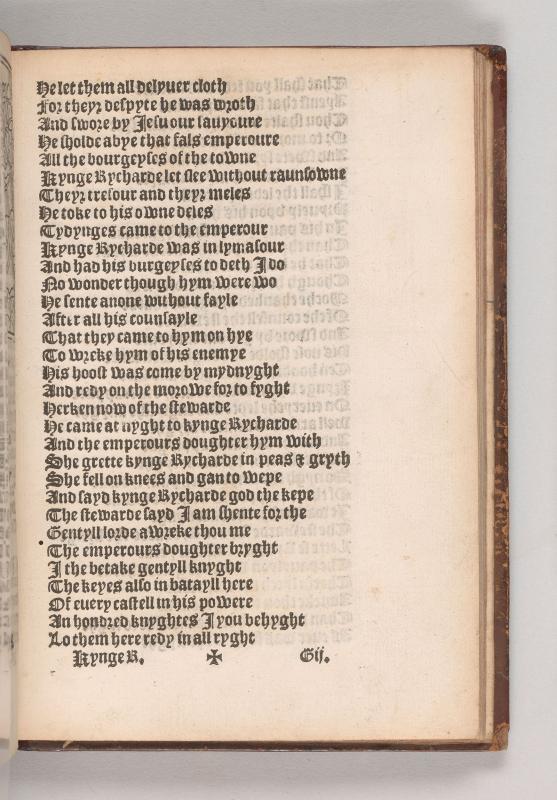 He let them all delyuer cloth
For theyr despyte he was wroth
And swore by Jesu our sauyoure
He sholde abye that fals emperoure
All the bourgeyses of the towne
Kynge Rycharde let slee without raunsowne
Theyr tresour and theyr meles
He toke to his owne deles
Tydynges came to the emperour
Kynge Rycharde was in lymasour
And had his burgeyses to deth I do
No wonder though hym were wo
He sente anone without fayle
After all his counsayle
That they came to hym on hye
To wreke hym of his enemye
His hoost was come by mydnyght
And redy on the morowe for to fyght
Herken now of the stewarde
He came at nyght to kynge Rycharde
And the emperours doughter hym with
She grette kynge Rycharde in peas & gryth
She fell on knees and gan to wepe
And sayd kynge Rycharde god the kepe
The stewarde sayd I am shente for the
Gentyll lorde awreke thou me
The emperours doughter bryght
I the betake gentyll knyght
The keyes also in batayll here
Of euery castell in his powere
An hondred knyghtes I you behyght
Lo them here redy in all ryght
Kynge R. ✠ Gij.